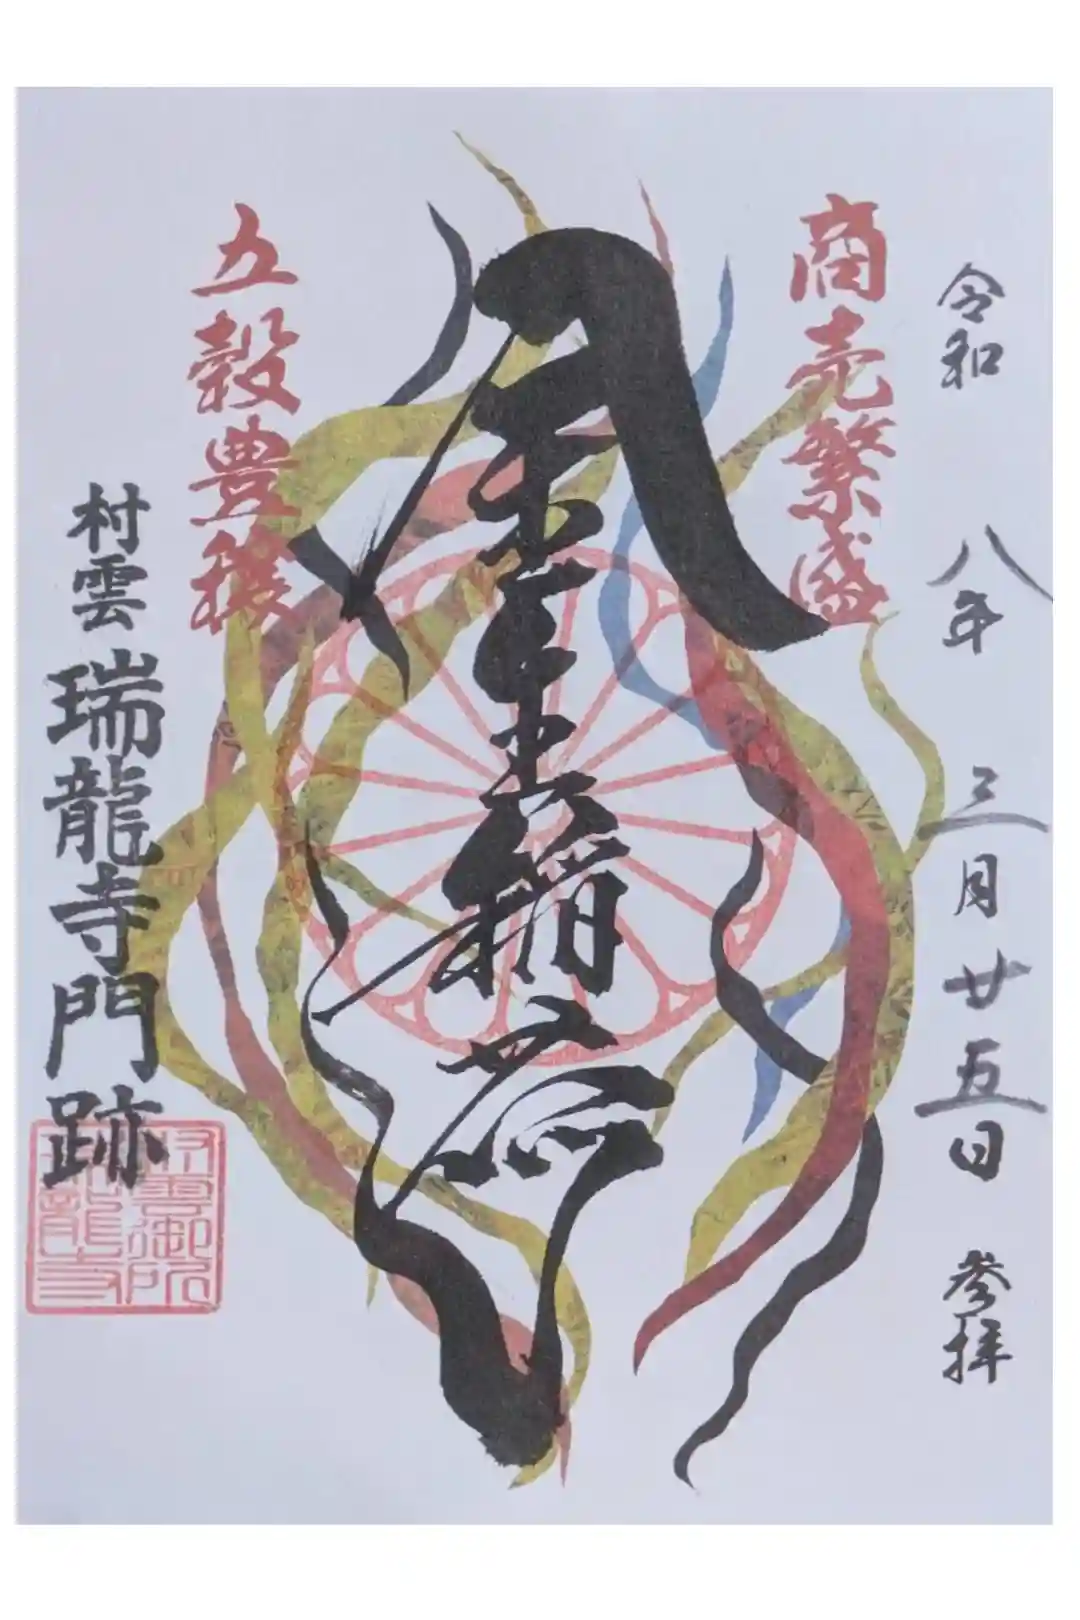 令和八年三月廿五日 参拝
商売繁盛
稲荷
五穀豊穣
村雲 瑞龍寺門跡
村雲御所
瑞龍寺